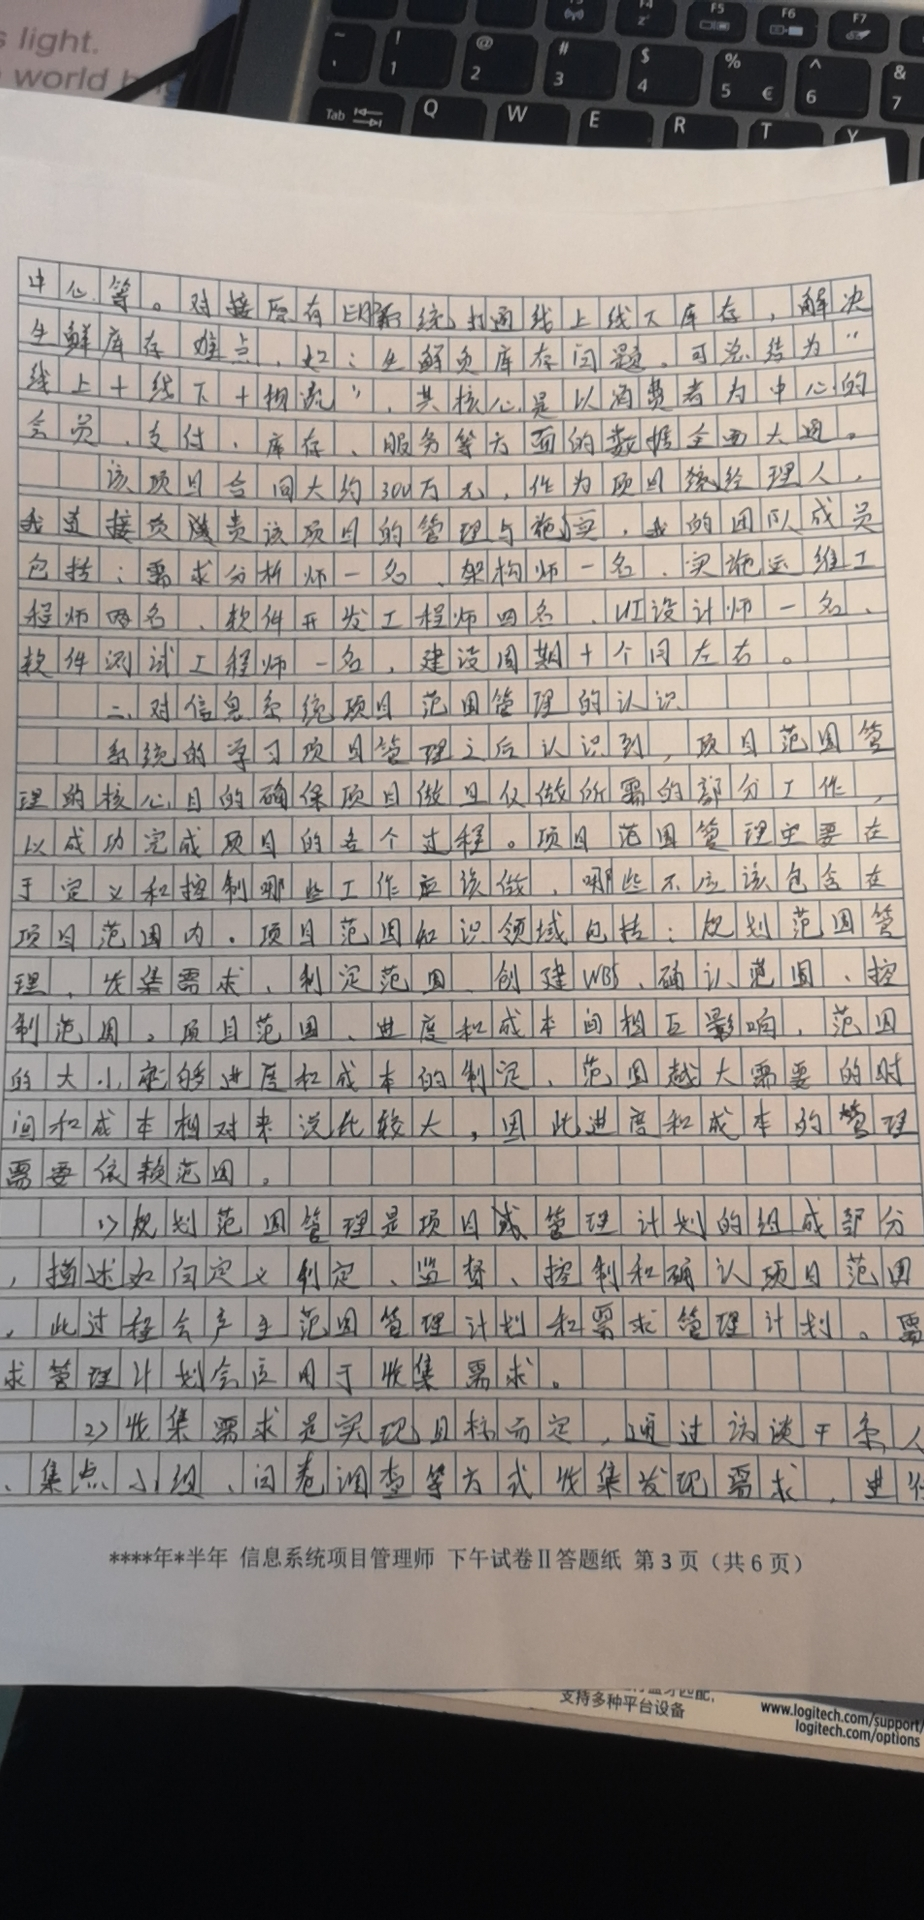 s light.
world
F4
F5
F6
F7
~
! 1
@ 2
# 3
$ 4
% 5 €
^ 6
& 7
Tab Q W E R T Y
中心等。对接原有旧系统,打通线上线下库存,解决
生鲜库存难点,如:生鲜负库存问题。可总结为“
线上+线下+物流”,其核心是以消费者为中心的
会员、支付、库存、服务等方面的数据全面大通。
该项目合同大约300万元,作为项目经理人,
我直接负责该项目的管理与施实,我的团队成员
包括:需求分析师一名、架构师一名、实施运维工
程师两名、软件开发工程师四名、UI设计师一名、
软件测试工程师一名,建设周期十个月左右。
二、对信息系统项目范围管理的认识
系统的学习项目管理之后认识到,项目范围管
理的核心目的确保项目做且仅做所需的部分工作,
以成功完成项目的各个过程。项目范围管理主要在
于定义和控制哪些工作应该做,哪些不应该包含在
项目范围内。项目范围知识领域包括:规划范围管
理、收集需求、制定范围、创建WBS、确认范围、控
制范围。项目范围、进度和成本间相互影响,范围
的大小能够进度和成本的制定,范围越大需要的时
间和成本相对来说比较大,因此进度和成本的管理
需要依赖范围。
1)规划范围管理是项目管理计划的组成部分
,描述如何定义制定、监督、控制和确认项目范围
,此过程会产生范围管理计划和需求管理计划。需
求管理计划会应用于收集需求。
2)收集需求是实现目标而定,通过访谈干系人
、焦点小组、问卷调查等方式收集发现需求,进行
****年*半年 信息系统项目管理师 下午试卷Ⅱ答题纸 第3页(共6页)
支持多种平台设备
www.logitech.com/support/
logitech.com/options